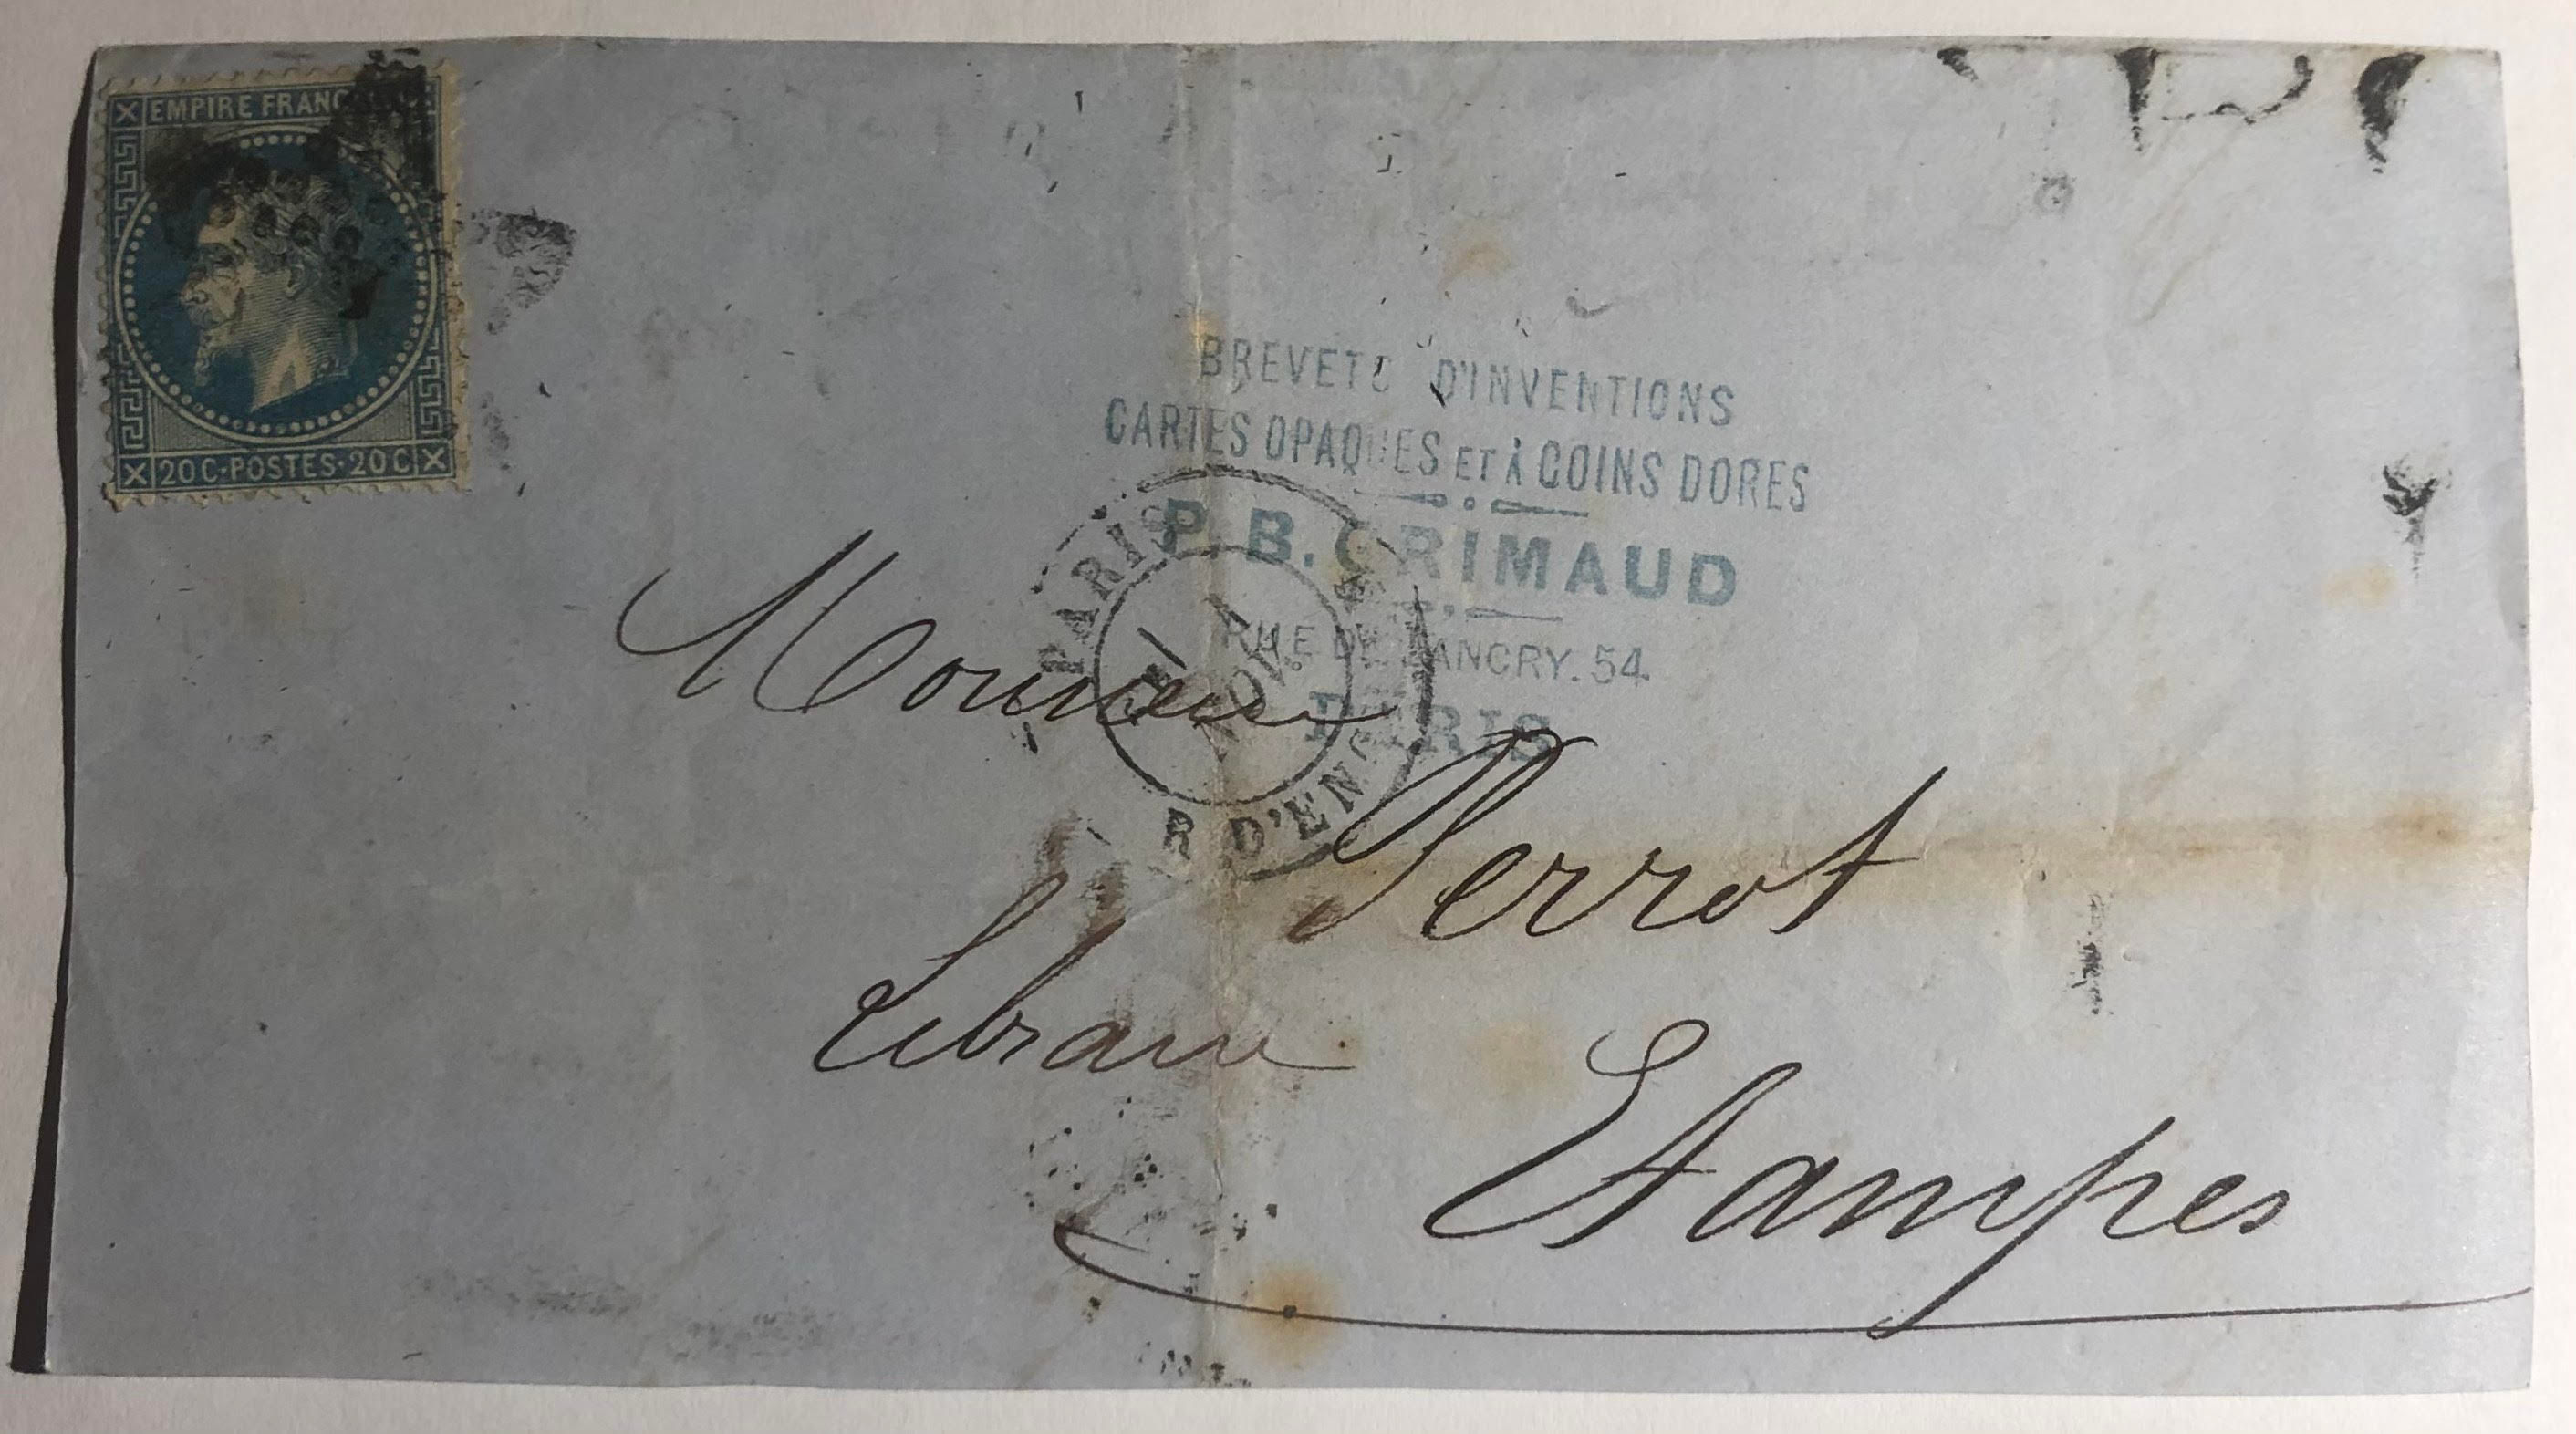 EMPIRE FRANC
20C·POSTES·20C
BREVETS D'INVENTIONS
CARTES OPAQUES ET À COINS DORES
P. B. GRIMAUD
RUE DE LANCRY. 54
PARIS
PARIS
NOV.
R D'ENG
Monsieur
Perrot
Libraire
Etampes